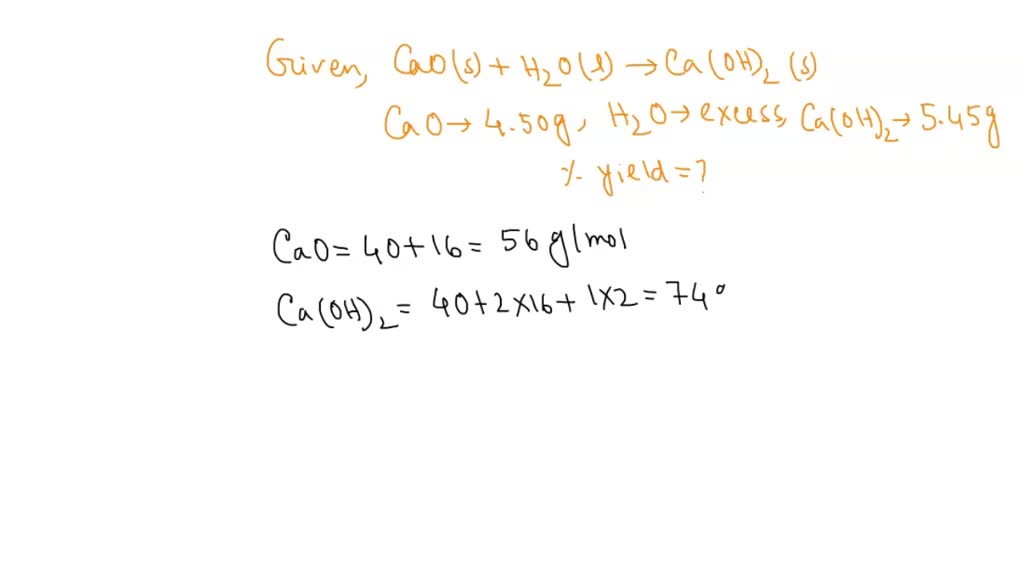 Given, CaO(s) + H₂O(l) → Ca(OH)₂ (s)
CaO → 4.50g, H₂O → excess, Ca(OH)₂ → 5.45g
% yield = ?
CaO = 40+16 = 56 g/mol
Ca(OH)₂ = 40+2×16+1×2 = 74